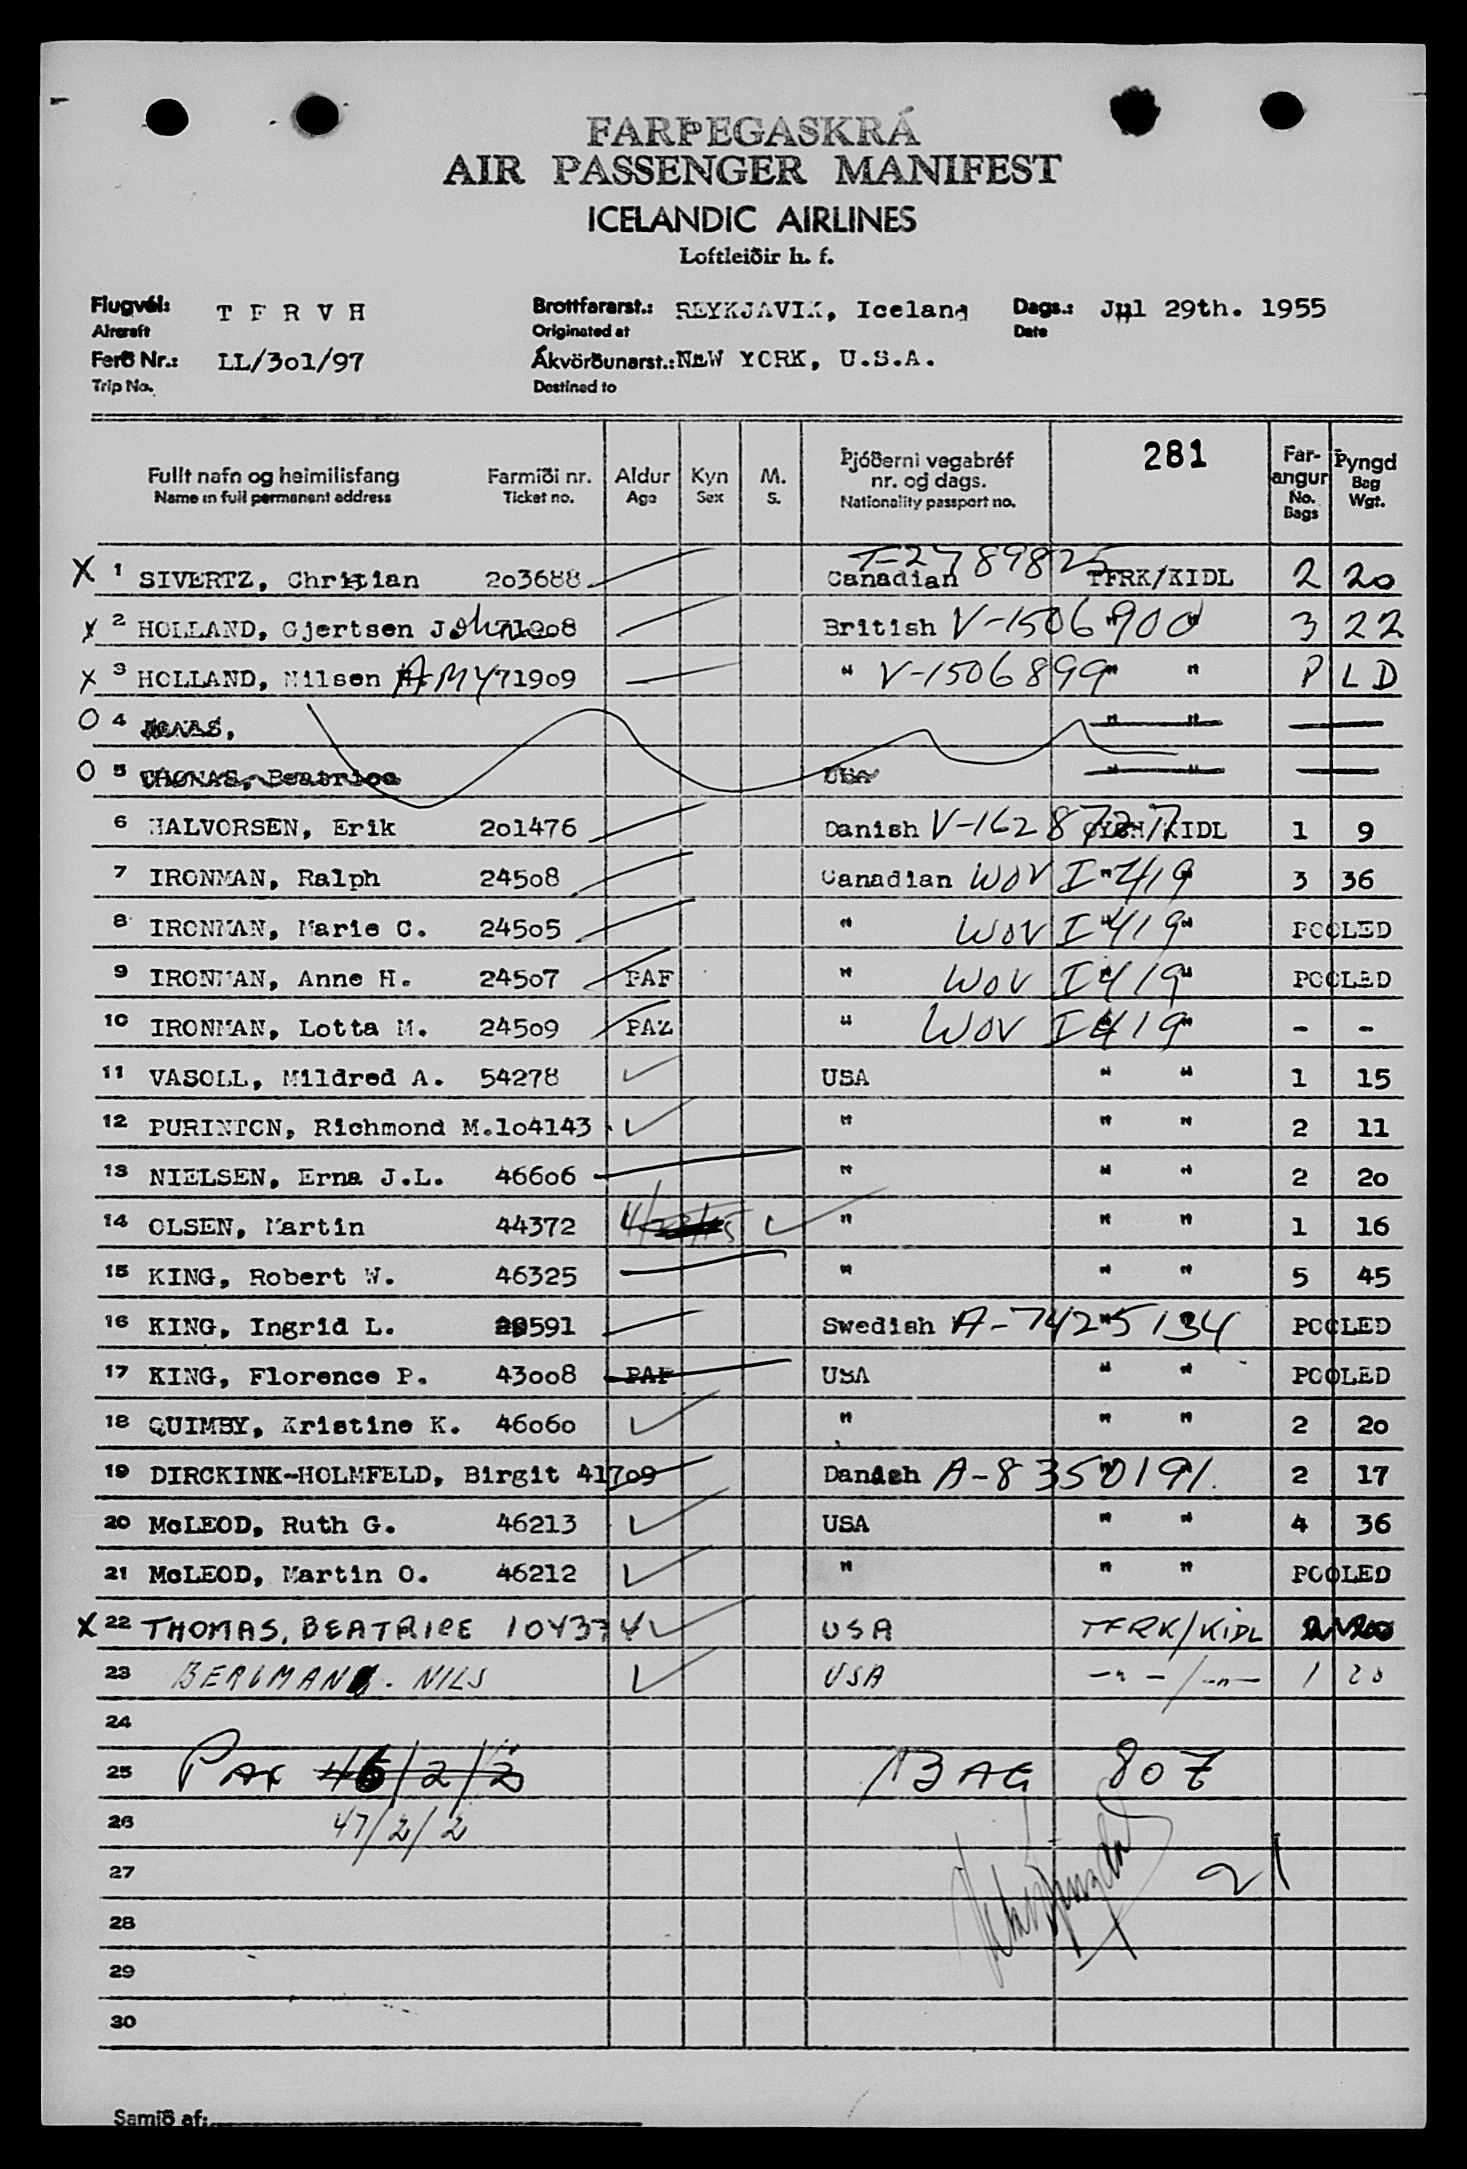 FARÞEGASKRÁ
AIR PASSENGER MANIFEST
ICELANDIC AIRLINES
Loftleiðir h. f.
Flugvél: T F R V H Brottfararst.: REYKJAVIK, Iceland Dags.: Jul 29th. 1955
Aircraft Originated at Date
Ferð Nr.: LL/3o1/97 Ákvörðunarst.: NEW YORK, U.S.A.
Trip No. Destined to
Fullt nafn og heimilisfang Farmiði nr. Aldur Kyn M. Þjóðerni vegabréf nr. og dags. 281 Far-angur Þyngd
Name in full permanent address Ticket no. Age Sex S. Nationality passport no. No. Bags Bag Wgt.
X 1 SIVERTZ, Christian 2o3688 Canadian T-2789825 TFRK/KIDL 2 20
X 2 HOLLAND, Gjertsen John 719o8 British V-1506900 " " 3 22
X 3 HOLLAND, Nilsen AMY 719o9 " V-1506899 " " P L D
O 4 " "
O 5 THOMAS, Beatrice USA " "
6 HALVORSEN, Erik 2o1476 Danish V-1628727 /KIDL 1 9
7 IRONMAN, Ralph 245o8 Canadian WOV I-419 " " 3 36
8 IRONMAN, Marie C. 245o5 " WOV I 419 " " POOLED
9 IRONMAN, Anne H. 245o7 PAF " WOV I 419 " " POOLED
10 IRONMAN, Lotta M. 245o9 PAZ " WOV I 419 " " - -
11 VASOLL, Mildred A. 54278 USA " " 1 15
12 PURINTON, Richmond M. 1o4143 " " " 2 11
13 NIELSEN, Erna J.L. 466o6 " " " 2 2o
14 OLSEN, Martin 44372 " " " 1 16
15 KING, Robert W. 46325 " " " 5 45
16 KING, Ingrid L. 591 Swedish A-7425134 " " POOLED
17 KING, Florence P. 43oo8 PAF USA " " POOLED
18 QUIMBY, Kristine K. 46o6o " " " 2 2o
19 DIRCKINK-HOLMFELD, Birgit 417o9 Danish A-8350191. " " 2 17
20 McLEOD, Ruth G. 46213 USA " " 4 36
21 McLEOD, Martin O. 46212 " " " POOLED
X 22 THOMAS, BEATRICE 104374 USA TFRK/KIDL 2 20
23 BERGMAN. NILS USA -"-/-"- 1 20
24
25 PAX 46/2/2 BAG 807
26 47/2/2
27 21
28
29
30
Samið af: